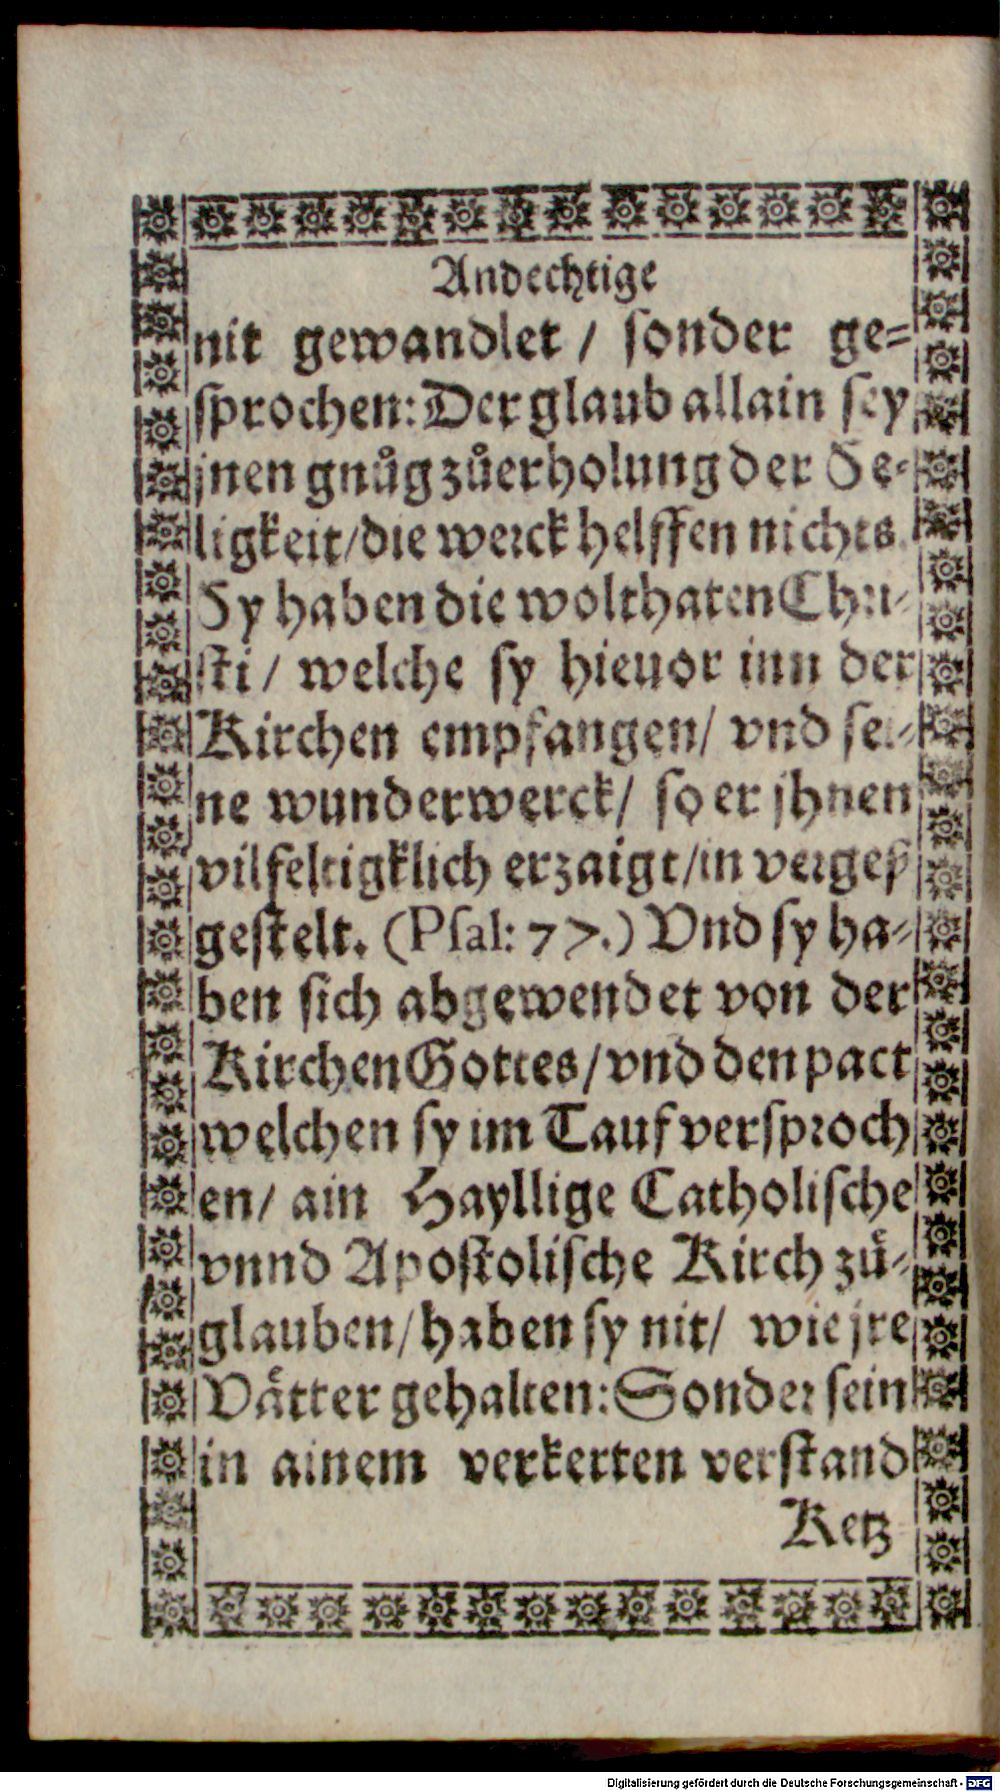 Andechtige
nit gewandlet / sonder ge=
sprochen: Der glaub allain sey
jnen gnůg zůerholung der Se=
ligkeit/die werck helffen nichts.
Sy haben die wolthaten Chri=
sti / welche sy hieuor inn der
Kirchen empfangen/ vnd sei=
ne wunderwerck/ so er jhnen
vilfeltigklich erzaigt/in vergeß
gestelt. (Psal: 77.) Vnd sy ha=
ben sich abgewendet von der
Kirchen Gottes/vnd den pact
welchen sy im Tauf versproch
en/ ain Hayllige Catholische
vnnd Apostolische Kirch zů=
glauben/haben sy nit/ wie jre
Våtter gehalten: Sonder sein
in ainem verkerten verstand
Ketz
Digitalisierung gefördert durch die Deutsche Forschungsgemeinschaft - DFG